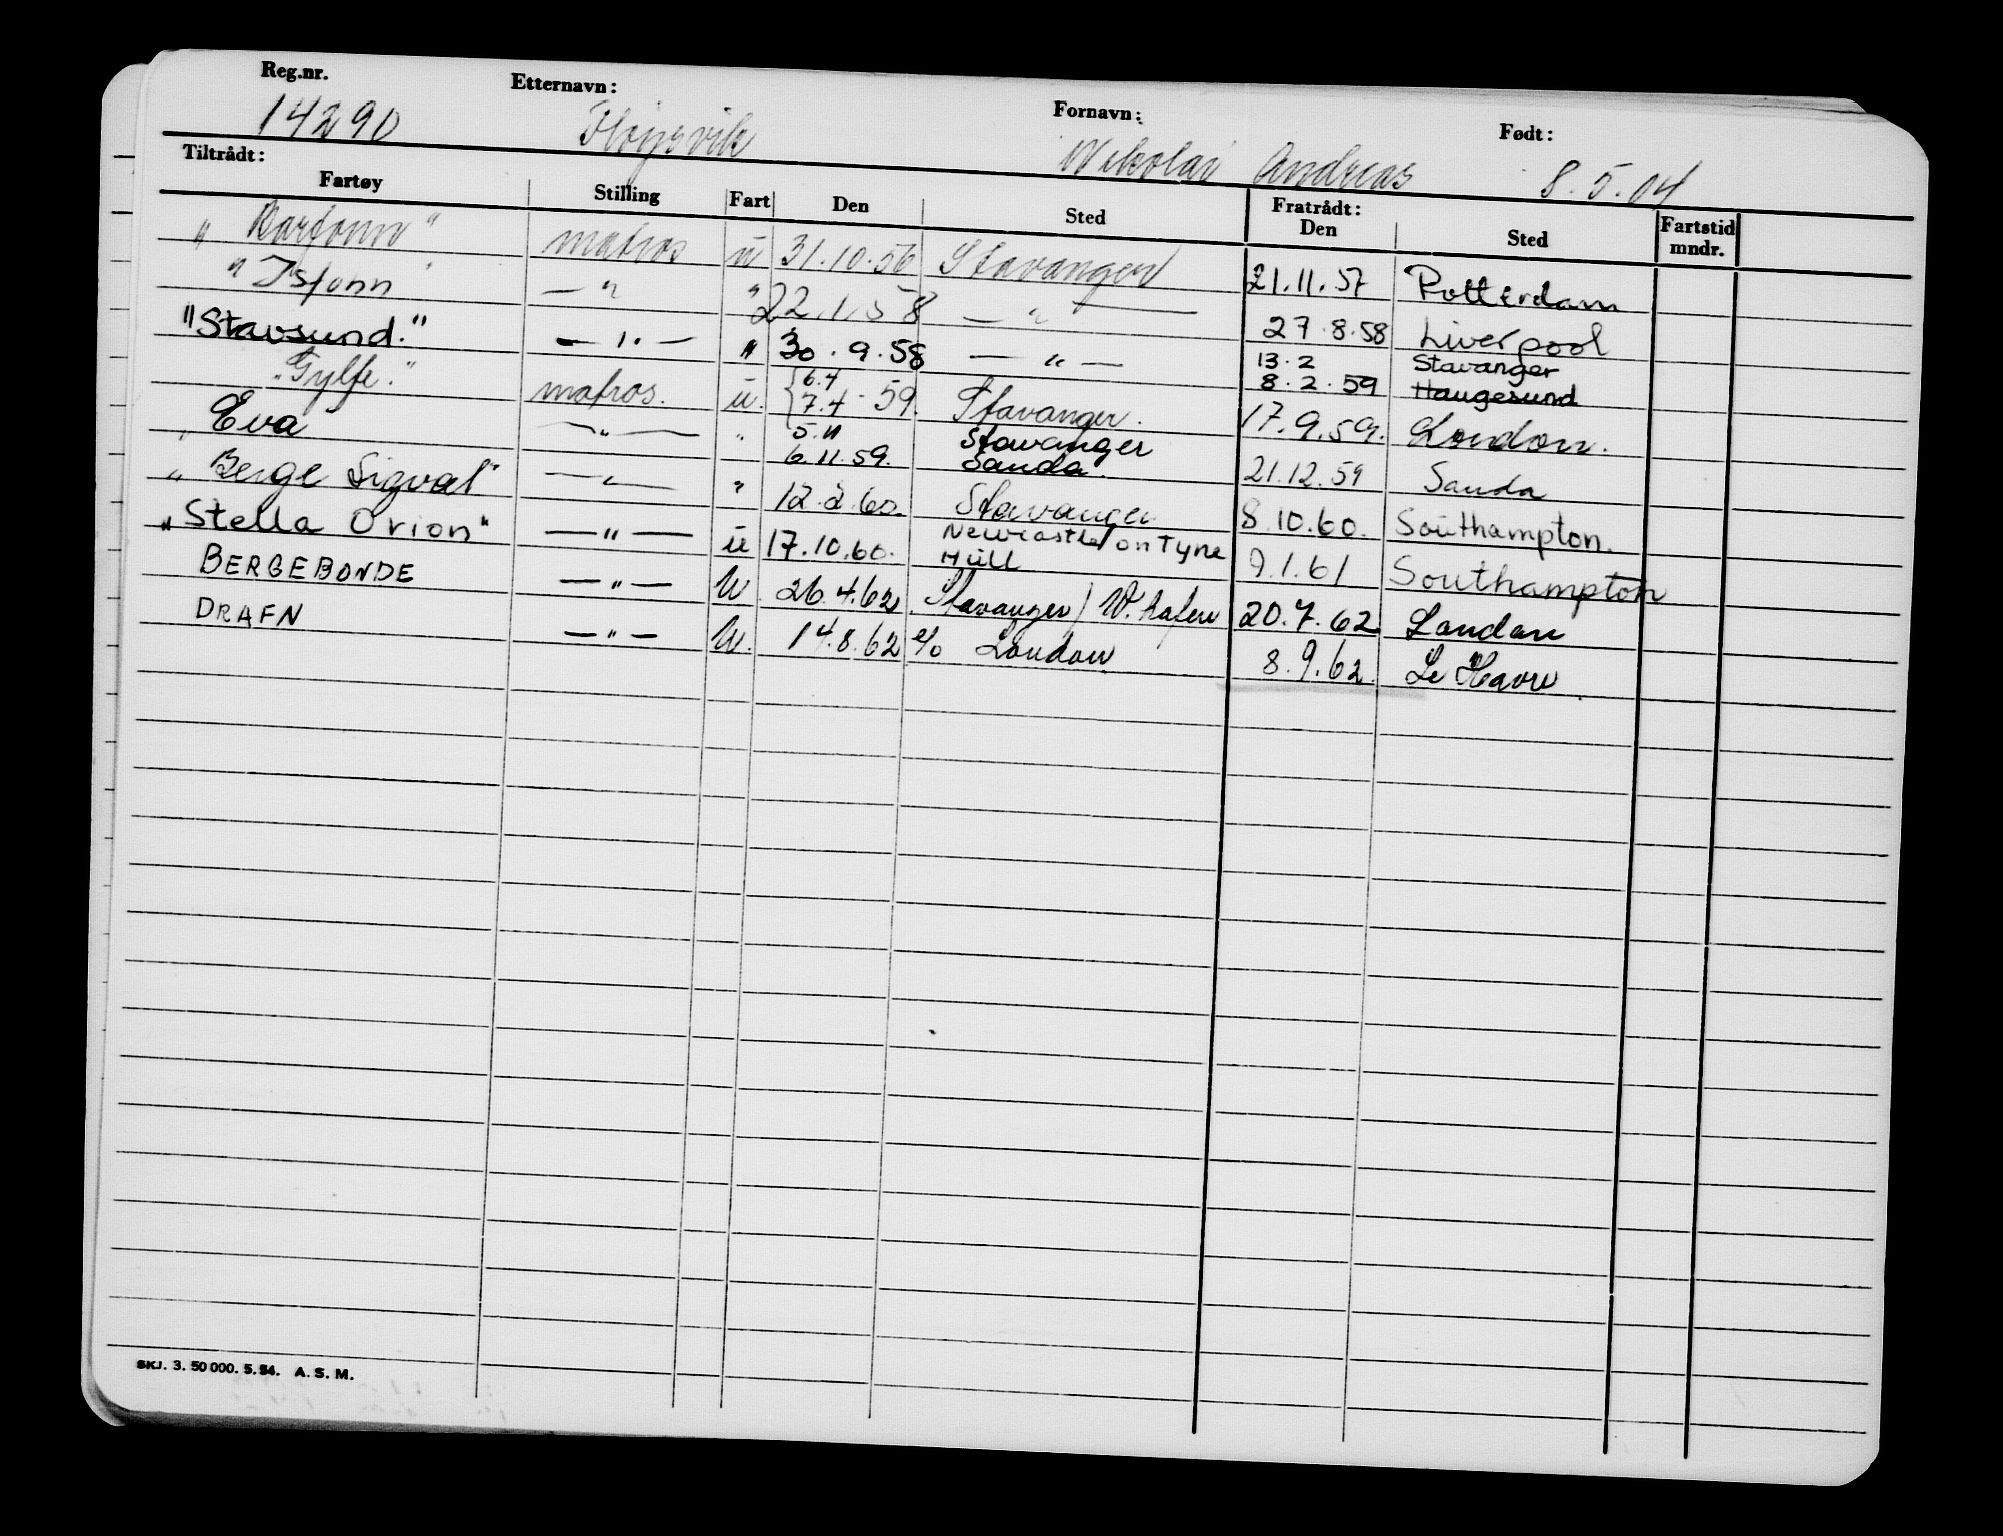 Reg.nr. Etternavn: Fornavn: Født:
14290 Fløysvik Nikolai Andreas 8.5.04
Tiltrådt: Fratrådt:
Fartøy Stilling Fart Den Sted Den Sted Fartstid mndr.
"Barfonn" matros u 31.10.56 Stavanger 21.11.57 Rotterdam
"Isfonn" — " " 22.1.58 — " — 27.8.58 Liverpool
"Stavsund." — " — " 30.9.58 — " — 13.2 Stavanger
8.2.59 Haugesund
"Gylfe." matros. u. {6.4 7.4 - 59. Stavanger. 17.9.59. London.
" Eva — " — " 5.11 Stavanger
6.11.59. Sauda. 21.12.59 Sauda
"Berge Sigval" — " — " 12.2.60. Stavanger 8.10.60. Southampton.
"Stella Orion" — " — u 17.10.60. Newcastle on Tyne
Hull 9.1.61 Southampton
BERGEBONDE — " — U 26.4.62 Stavanger / W.hafen 20.7.62 London
DRAFN — " — U. 14.8.62 e/o London 8.9.62. Le Havre
SKJ. 3. 50 000. 5.54. A. S. M.